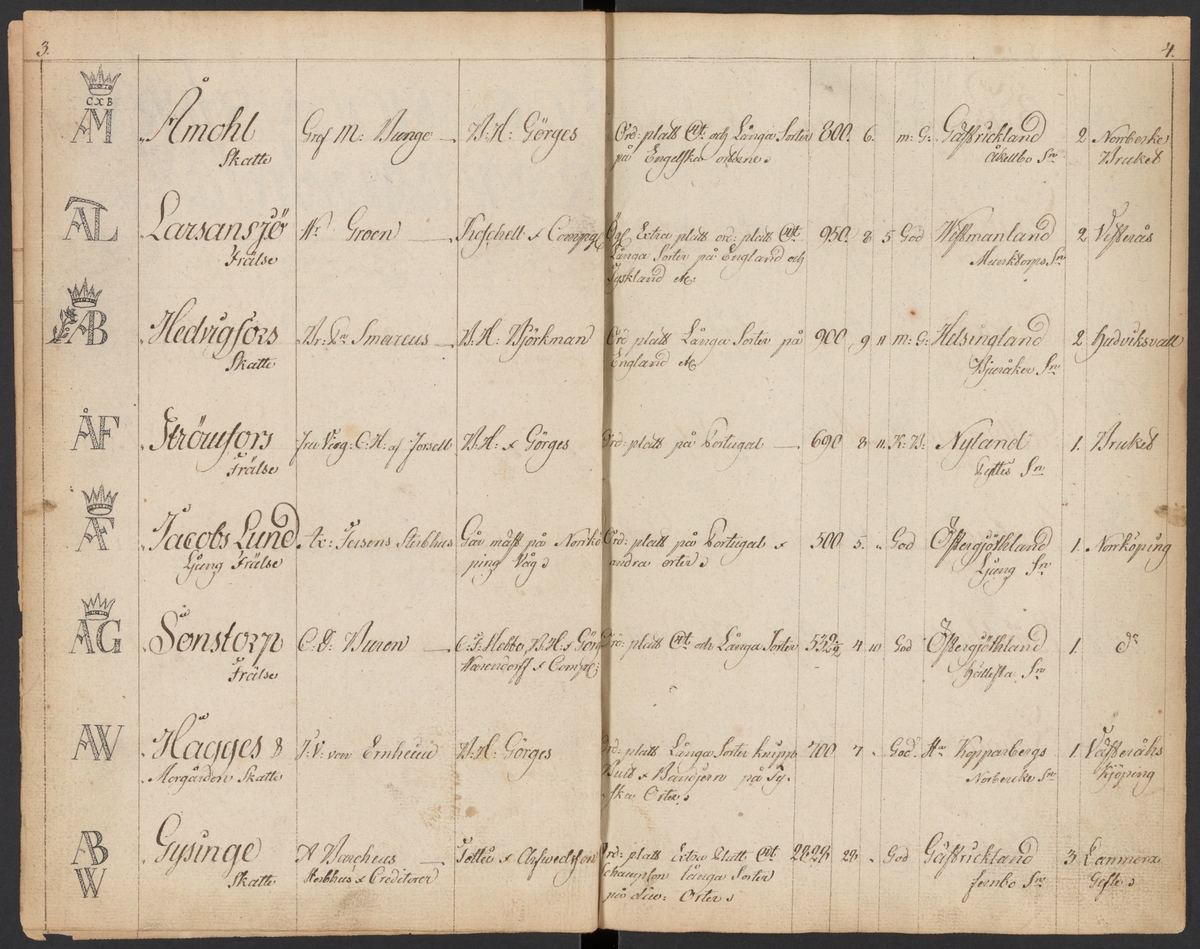 3.
4.
CXB
ÅM
Åmohl
Skatte
Gref M: Bunge
B: H: Görges
Ord: platt och Långa Sorter
på Engelska
800. 6. m: G:
Gästrickland
Sn
2
Norberke
Bruket
AL
Larsansjö
Frälse
Hr Groen
Koschell & Compag
Extra platt ord: platt
Långa Sorter på England och
Tyskland etc
950. 8 5 God
Wästmanland
Munktorps Sn
2
Västerås
AB
Hedvigfors
Skatte
B: H: Björkman
Ord platt Långa Sorter på
England etc
900 9 11 m: G:
Helsingland
Bjuråker Sn
2
Hudviksvall
ÅF
Strömfors
Frälse
C: H: af Forsell
B: H: & Görges
Ord: platt på Portugal
690 8 11. K: B:
Nyland
Sn
1.
Bruket
ÅF
Jacobs Lund
Ljung Frälse
Ax: Fersens Sterbhus
Går mäst på Norrkö
ping Våg
Ord: platt på Portugal &
andra orter
500 5. God
Östergjöthland
Ljung Sn
1.
Norrköping
AG
Sonstorp
Frälse
C: D: Buren
C: F: Hebbe, B: H: & Görg
Harendorff & Comp:
Ord: platt och Långa Sorter
532½ 4 10 God
Östergjöthland
Hällesta Sn
1.
do
AW
Hägges
Morgården Skatte
F: V: von Ernheim
B: H: Görges
Ord: platt Långa Sorter knipp
Bult & Bandjern på Ty-
ska Orter
700 7 God
Kopparbergs
Norberke Sn
1
Västeråhs
Kjöping
AB
W
Gysinge
Skatte
A Barcheus
Sterbhus & Creditorer
Tottie & Arfwedson
Ord: platt Extra Platt
Långa Sorter
på div: Orter
God
Gästrickland
Sn
3
Gefle